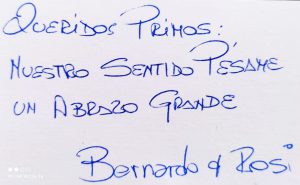 Queridos Primos:
Nuestro Sentido Pésame
un Abrazo Grande
Bernardo & Rosi